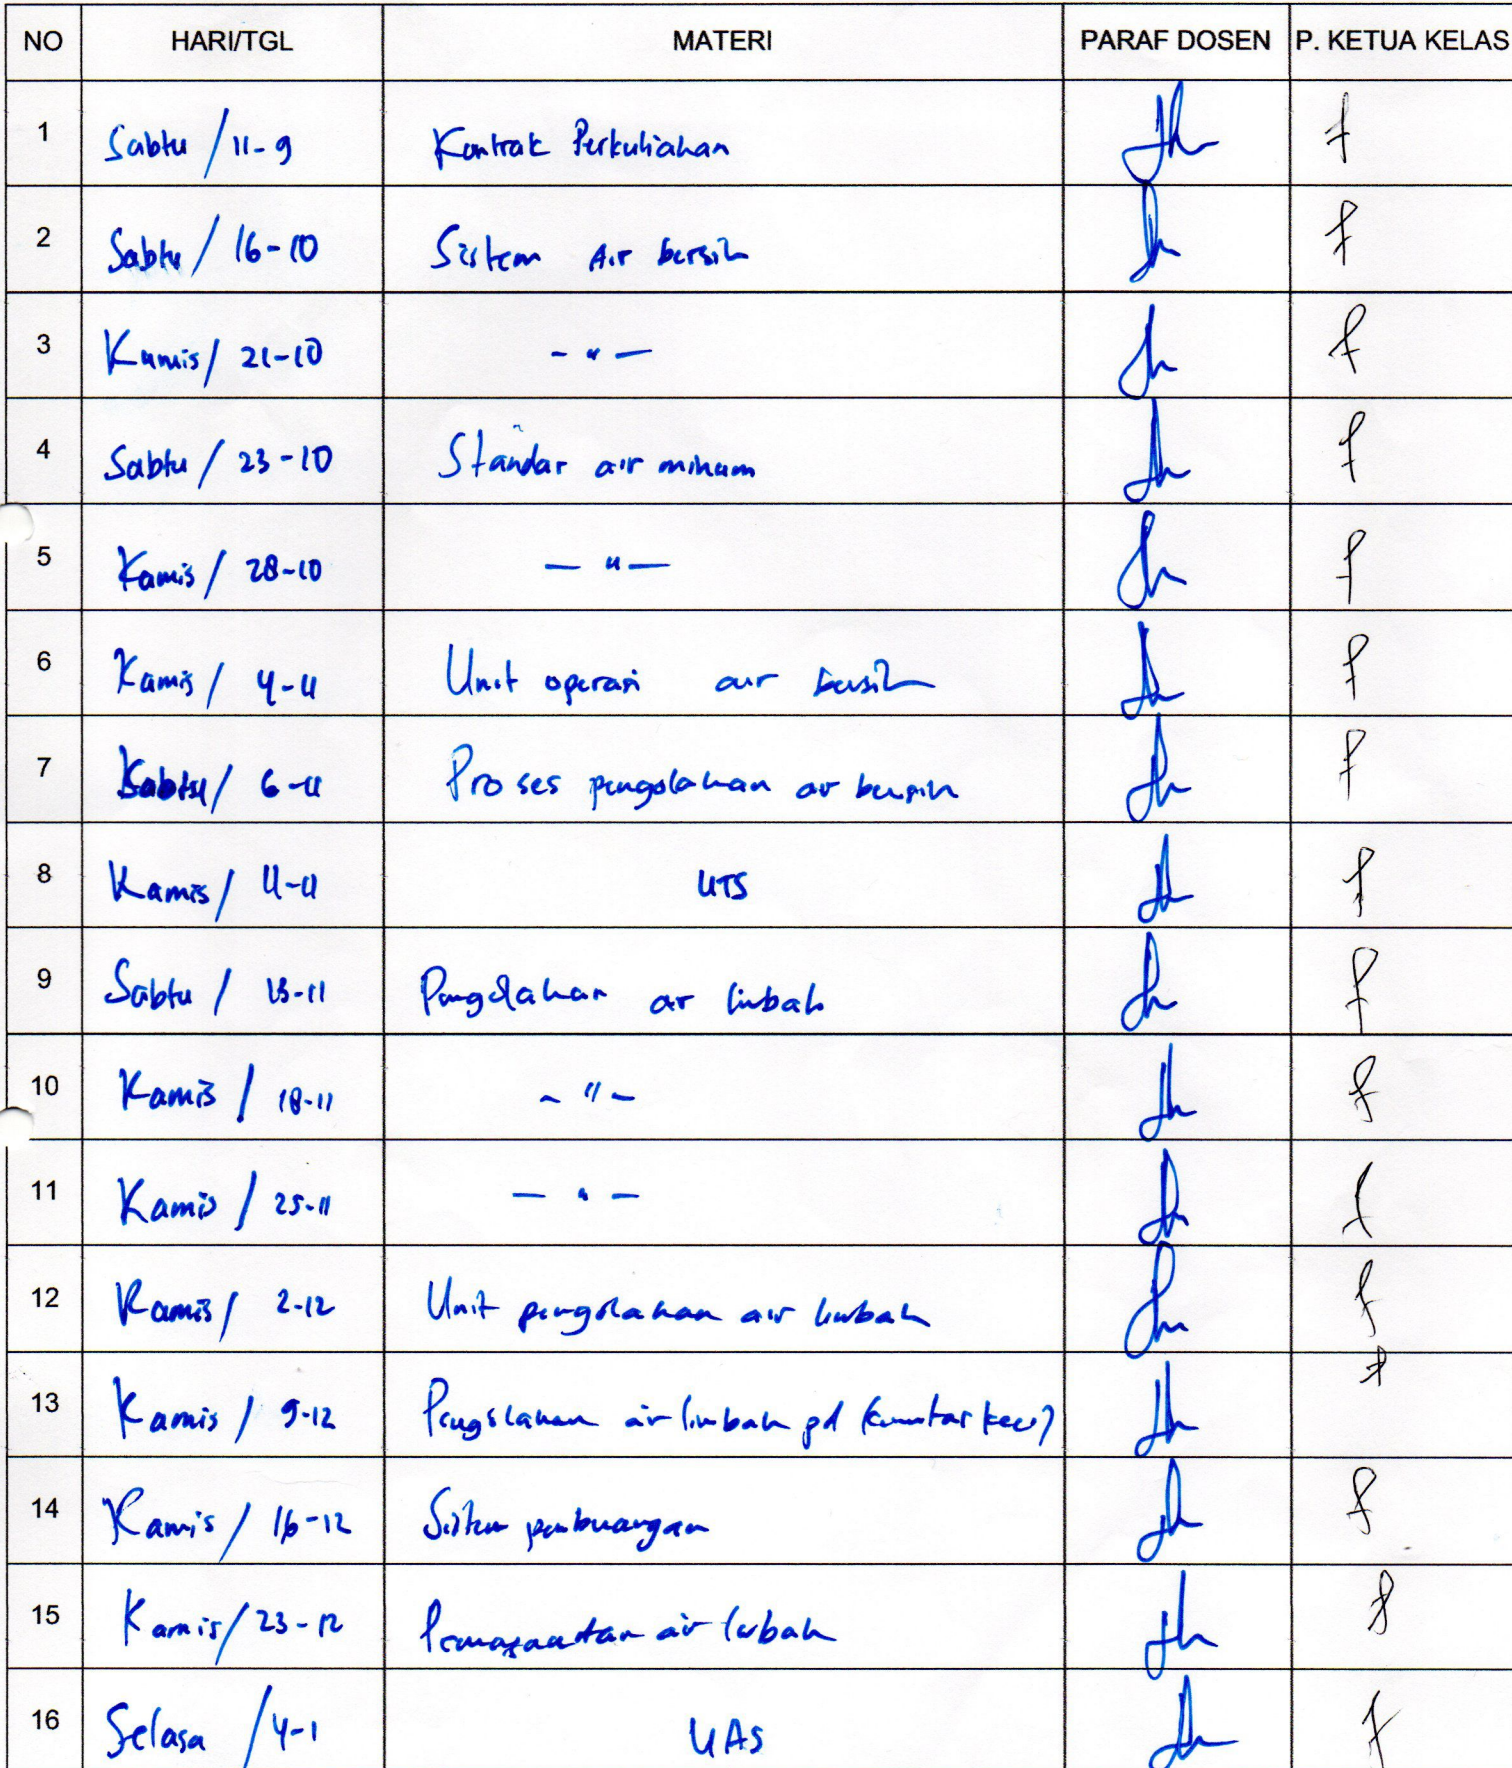 NO HARI/TGL MATERI PARAF DOSEN P. KETUA KELAS
1 Sabtu / 11-9 Kontrak Perkuliahan
2 Sabtu / 16-10 Sistem Air bersih
3 Kamis / 21-10 - " -
4 Sabtu / 23-10 Standar air minum
5 Kamis / 28-10 - " -
6 Kamis / 4-11 Unit operasi air bersih
7 Sabtu / 6-11 Proses pengolahan air bersih
8 Kamis / 11-11 UTS
9 Sabtu / 13-11 Pengolahan air limbah
10 Kamis / 18-11 - " -
11 Kamis / 25-11 - " -
12 Kamis / 2-12 Unit pengolahan air limbah
13 Kamis / 9-12 Pengolahan air limbah pd
14 Kamis / 16-12 Sistem pembuangan
15 Kamis / 23-12 Pemanfaatan air limbah
16 Selasa / 4-1 UAS